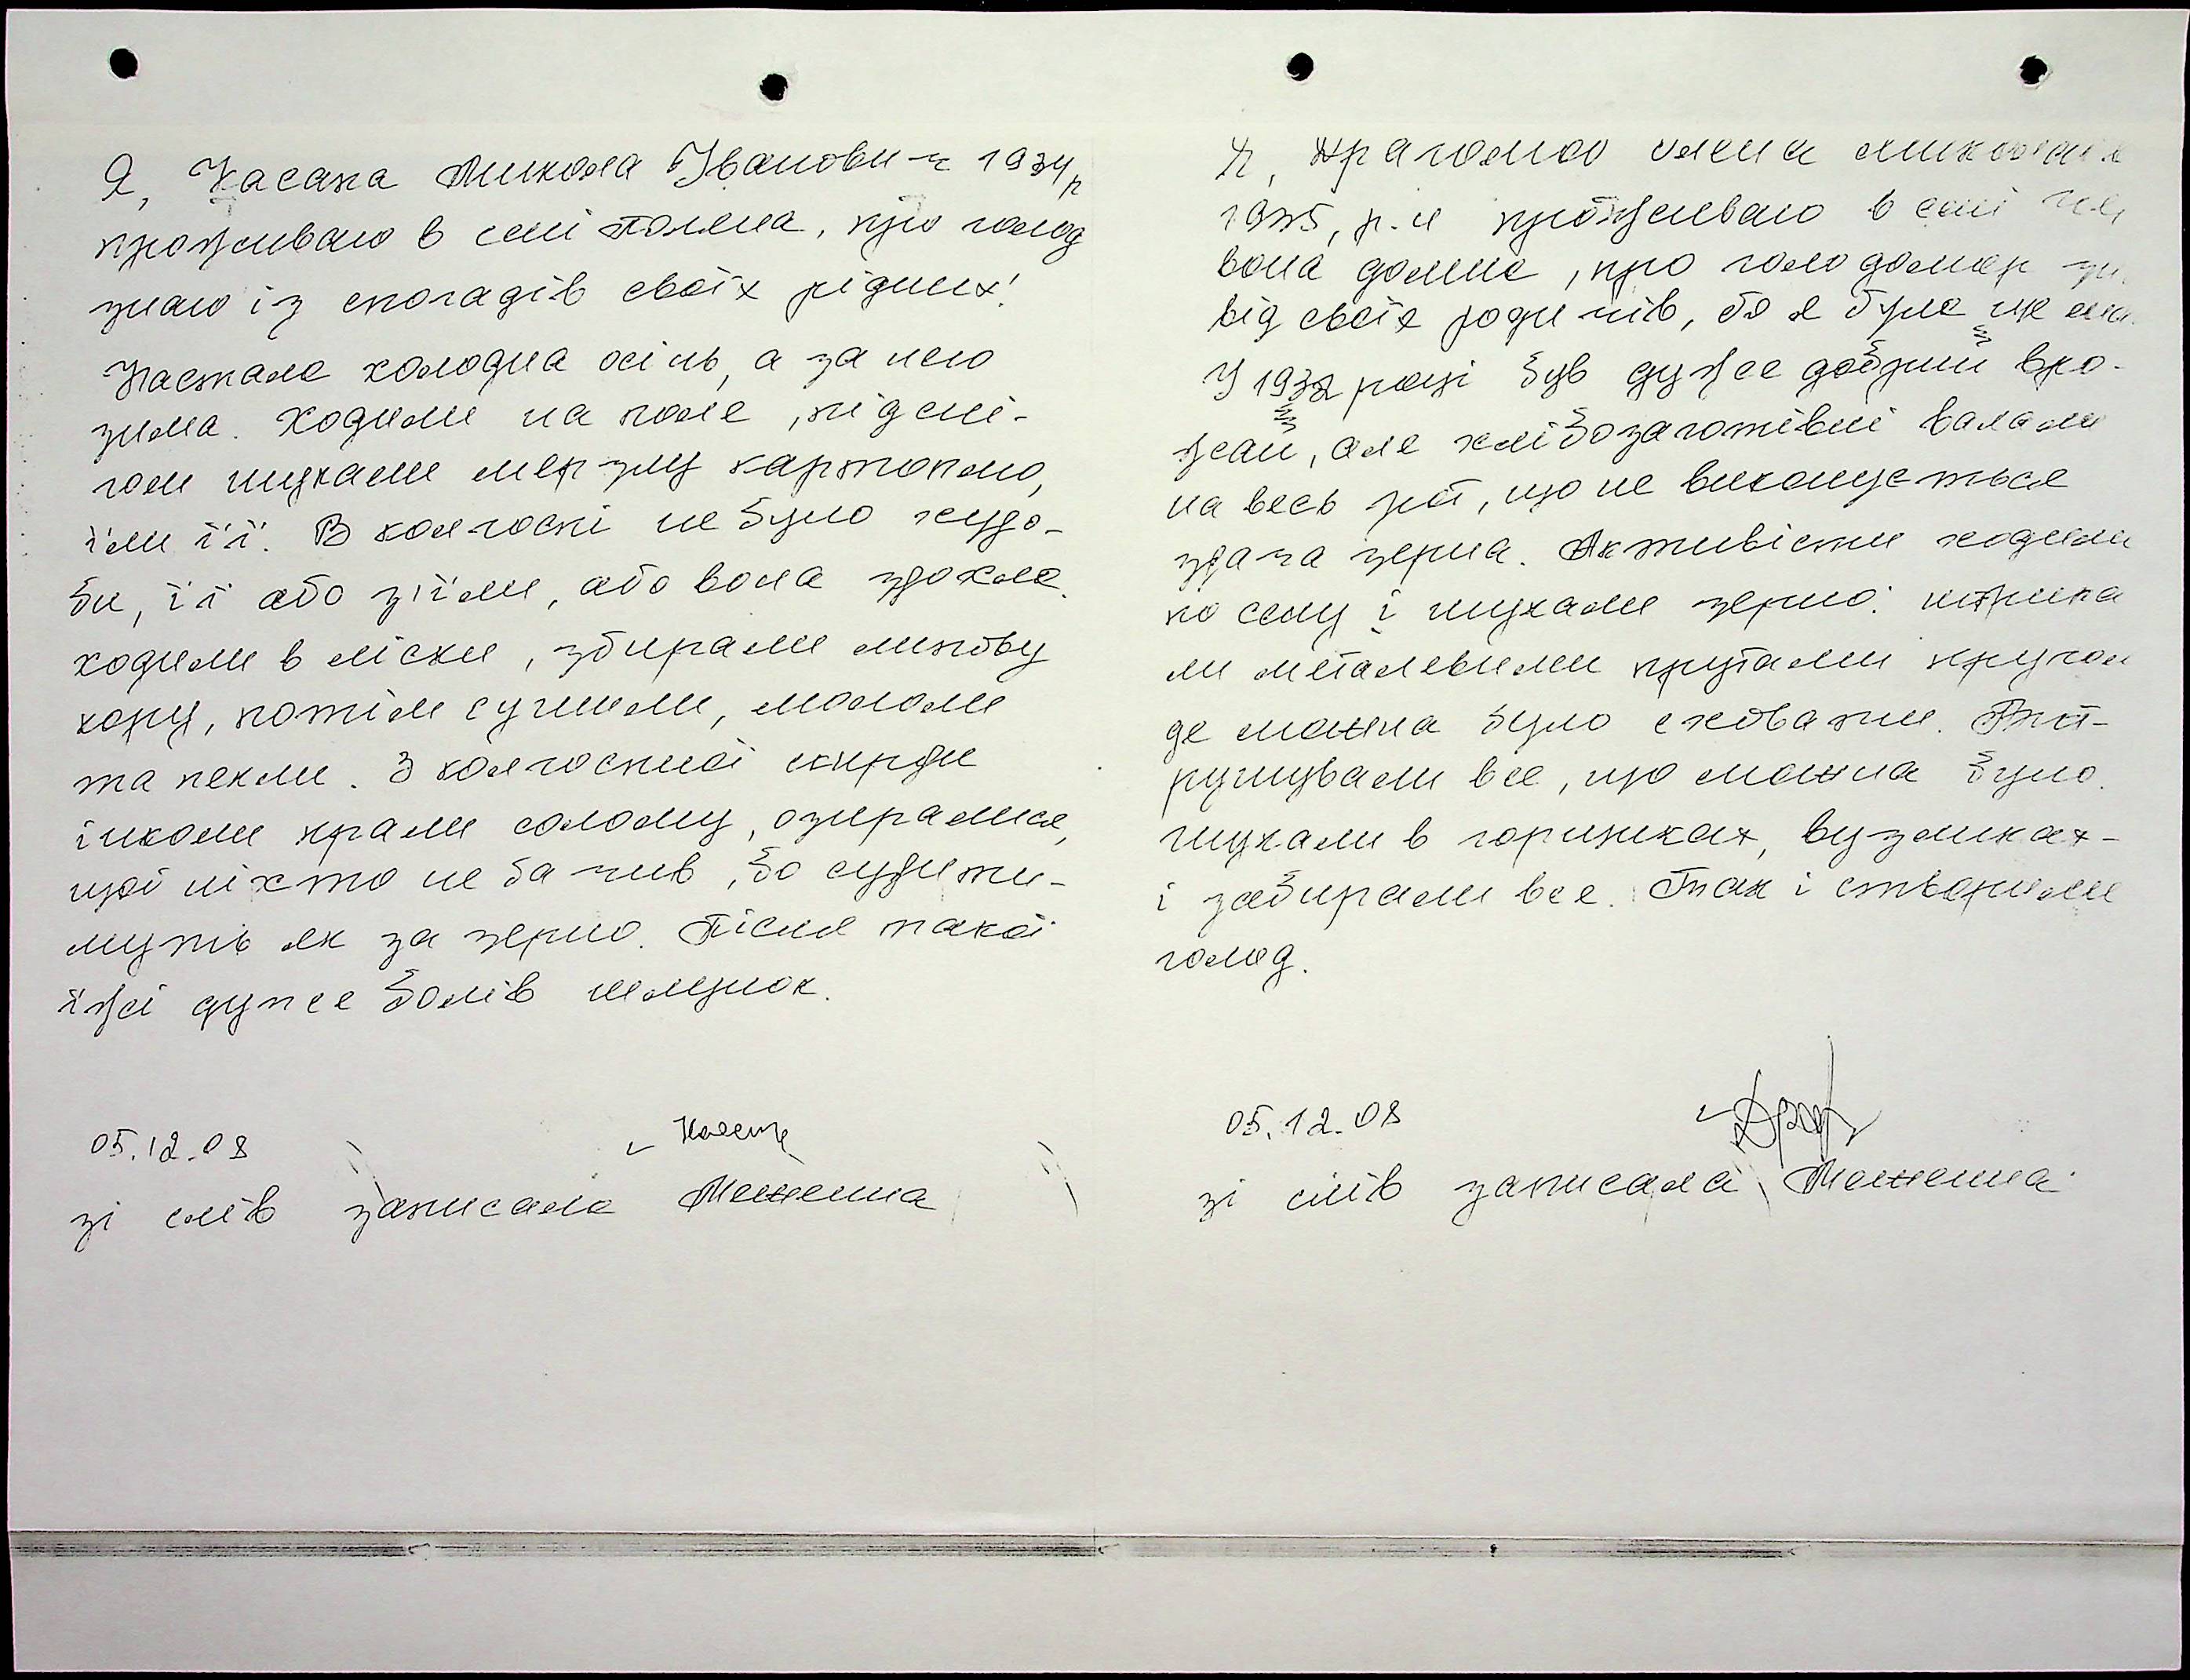 Я, Касапа Микола Іванович 1934 р
проживаю в селі Поляна, про голод
знаю із спогадів своїх рідних!
Настала холодна осінь, а за нею
зима. Ходили на поле, під сні-
гом шукали мерзлу картоплю,
їли її. В колгоспі не було худо-
би, її або з'їли, або вона здохла.
ходили в ліски, збирали липову
кору, потім сушили, мололи
та пекли. З колгоспної скирди
інколи крали солому, озиралися,
щоб ніхто не бачив, бо судити-
муть як за зерно. Після такої
їжі дуже болів шлунок.
05.12.08
зі слів записала Меженна
Я, Драгомао Олена Микола
1935, р.н проживаю в селі
вона долина, про голодомор
від своїх родичів, бо я була ще
У 1932 році був дуже добрий вро-
жай, але хлібозаготівлі
на весь рот, що не виконується
здача зерна. Активісти ходили
по селу і шукали зерно: штрика
ли металевими прутами кругом
де можна було сховати.
рушували все, що можна було.
шукали в горшках, вузликах -
і забирали все. Так і створили
голод.
05.12.08
зі слів записала Меженна